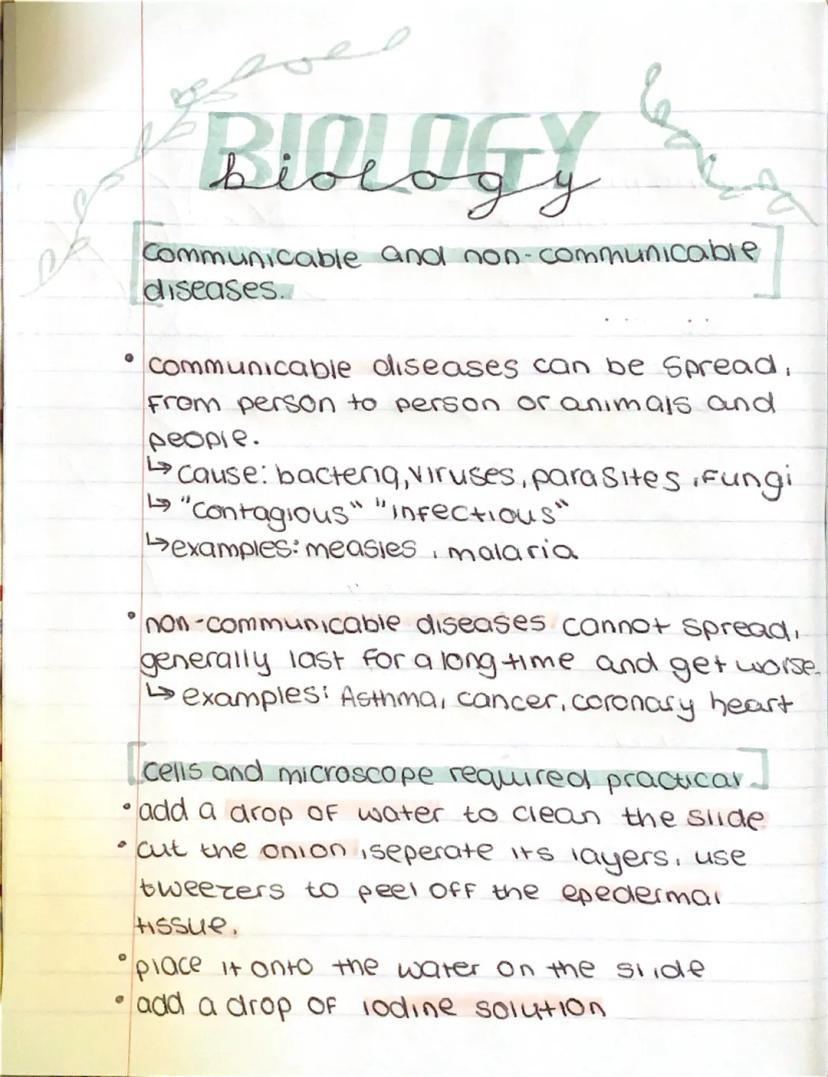 BIOLOGY
biology
communicable and non-communicable
diseases.
• communicable diseases can be spread,
from person to person or animals and
people.
↳ cause: bacteria, viruses, parasites, fungi
↳ "contagious" "infectious"
↳ examples: measles, malaria
• non-communicable diseases cannot spread,
generally last for a long time and get worse.
↳ examples: Asthma, cancer, coronary heart
cells and microscope required practical
• add a drop of water to clean the slide
• cut the onion, seperate its layers, use
tweezers to peel off the epedermal
tissue.
• place it onto the water on the slide
• add a drop of iodine solution